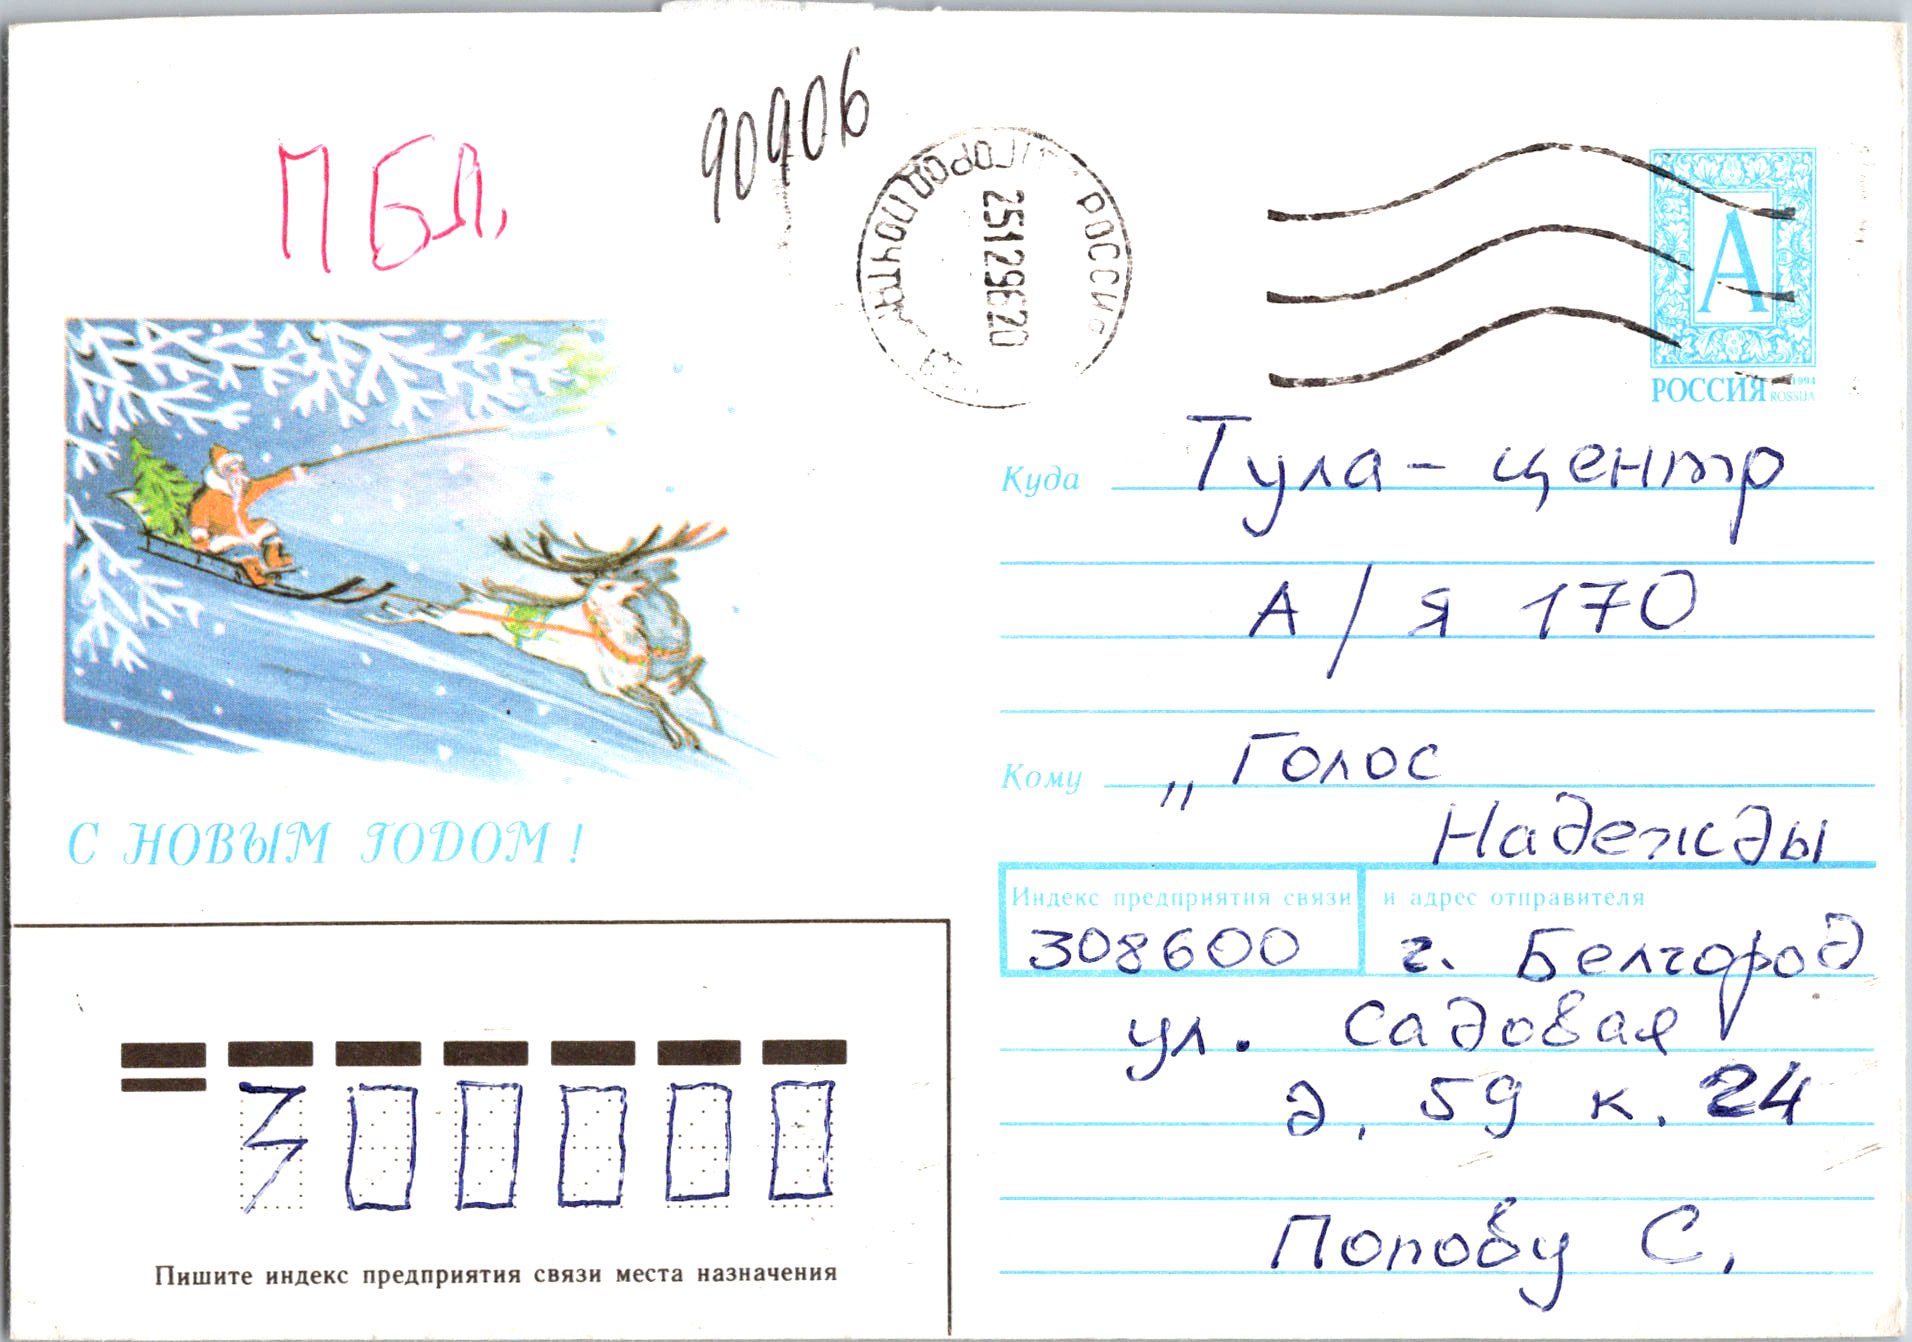 90906
П БЛ.
РОССИЯ
ГОРОДПОЧТА
25129620
А
РОССИЯ
1994
ROSSIJA
Куда Тула - центр
А/я 170
Кому „ Голос
Надежды
С НОВЫМ ГОДОМ!
Индекс предприятия связи и адрес отправителя
308600 г. Белгород
ул. Садовая
д. 59 к. 24
Попову С.
300000
Пишите индекс предприятия связи места назначения